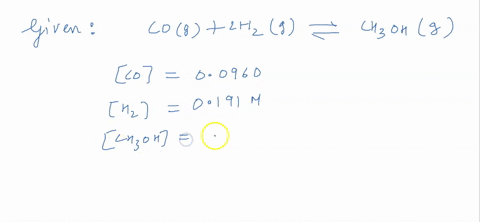 Given: CO(g) + 2H₂(g) ⇌ CH₃OH(g)
[CO] = 0.0960
[H₂] = 0.191 M
[CH₃OH] = .